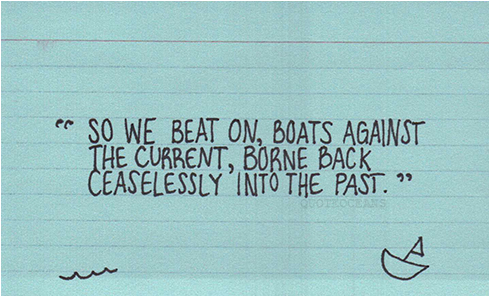 “ SO WE BEAT ON, BOATS AGAINST
THE CURRENT, BORNE BACK
CEASELESSLY INTO THE PAST. ”
QUOTEOCEANS